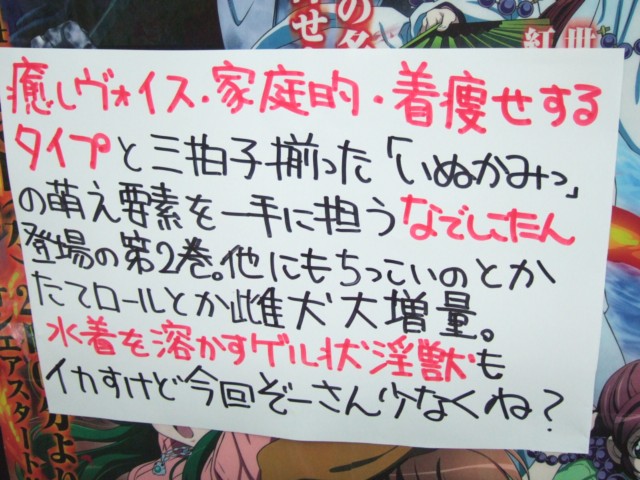 の名
併せ
紅世
癒しヴォイス・家庭的・着痩せする
タイプと三拍子揃った「いぬかみっ」
の萌え要素を一手に担うなでしこたん
登場の第2巻。他にもちっこいのとか
たてロールとか雌犬大増量。
水着を溶かすゲル状淫獣も
イカすけど今回ぞーさん少なくね?
月より
エアスタート